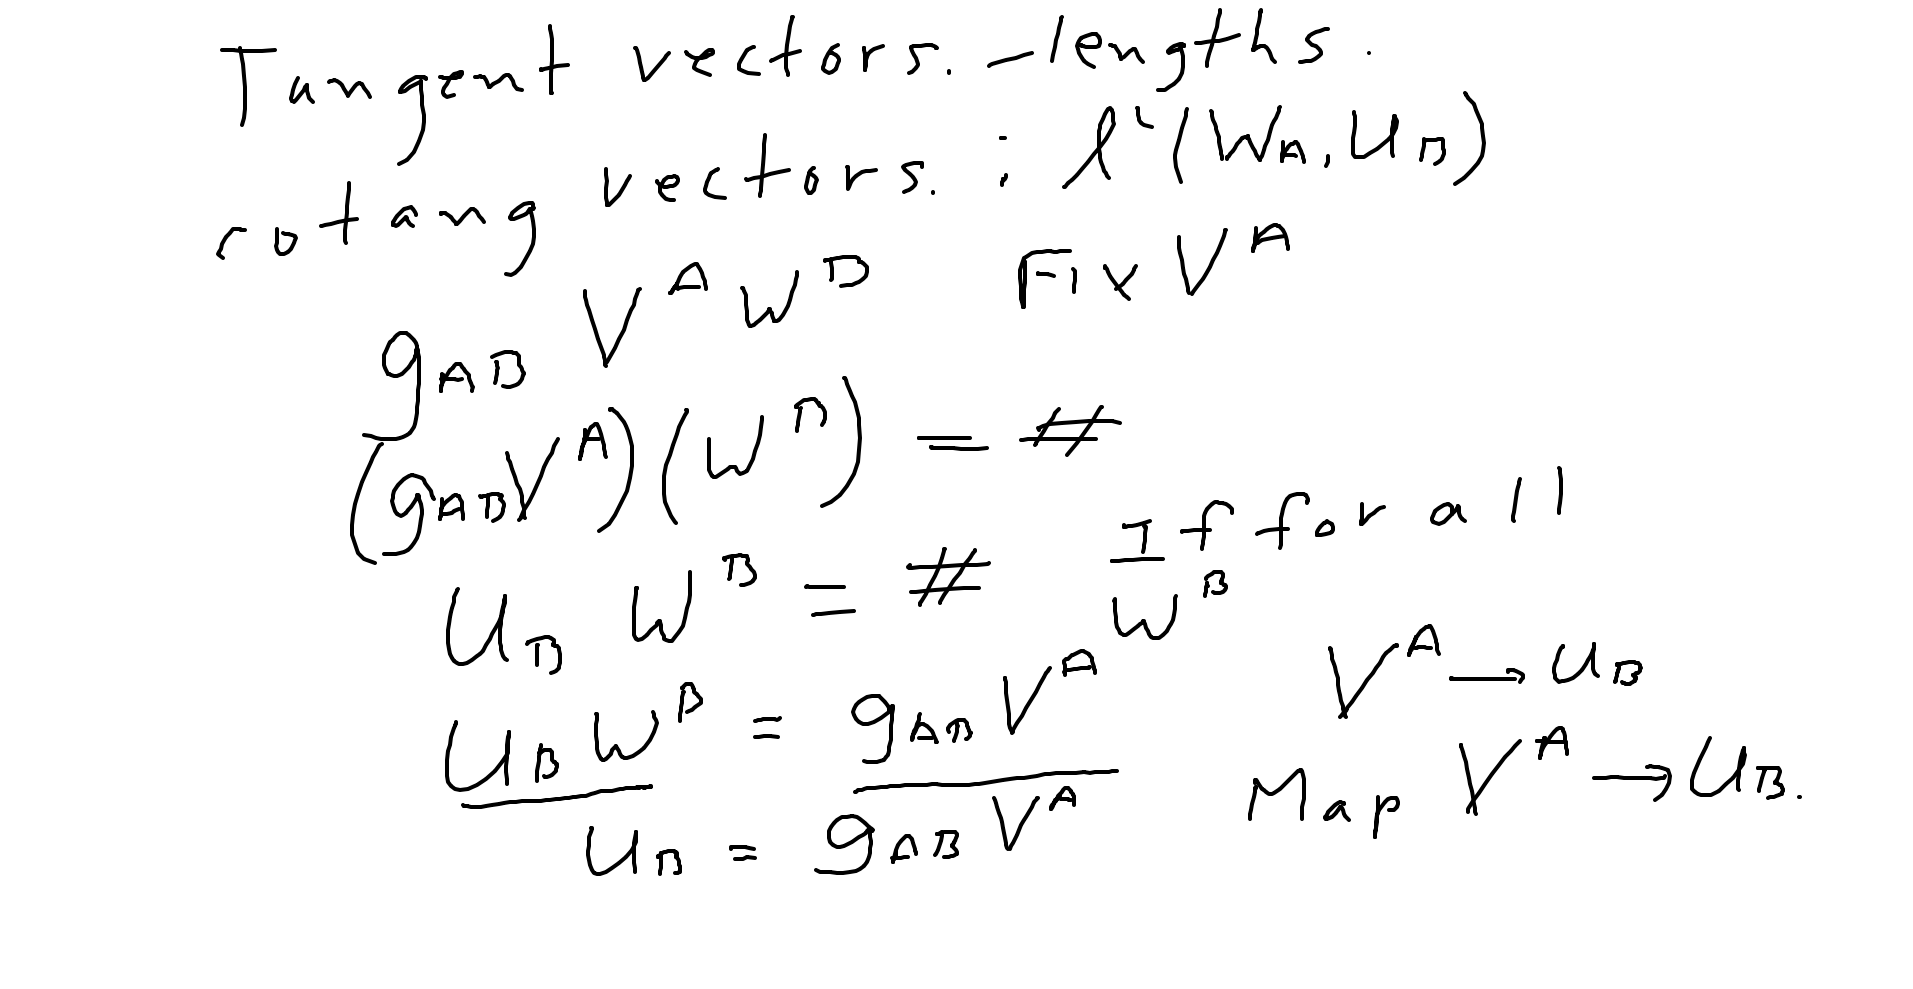 Tangent vectors. - lengths.
cotang vectors. : l²(W_A, U_B)
g_AB V^A W^B Fix V^A
(g_AB V^A)(W^B) = #
U_B W^B = # If for all W^B
V^A → U_B
U_B W^B = g_AB V^A
Map V^A → U_B.
U_B = g_AB V^A